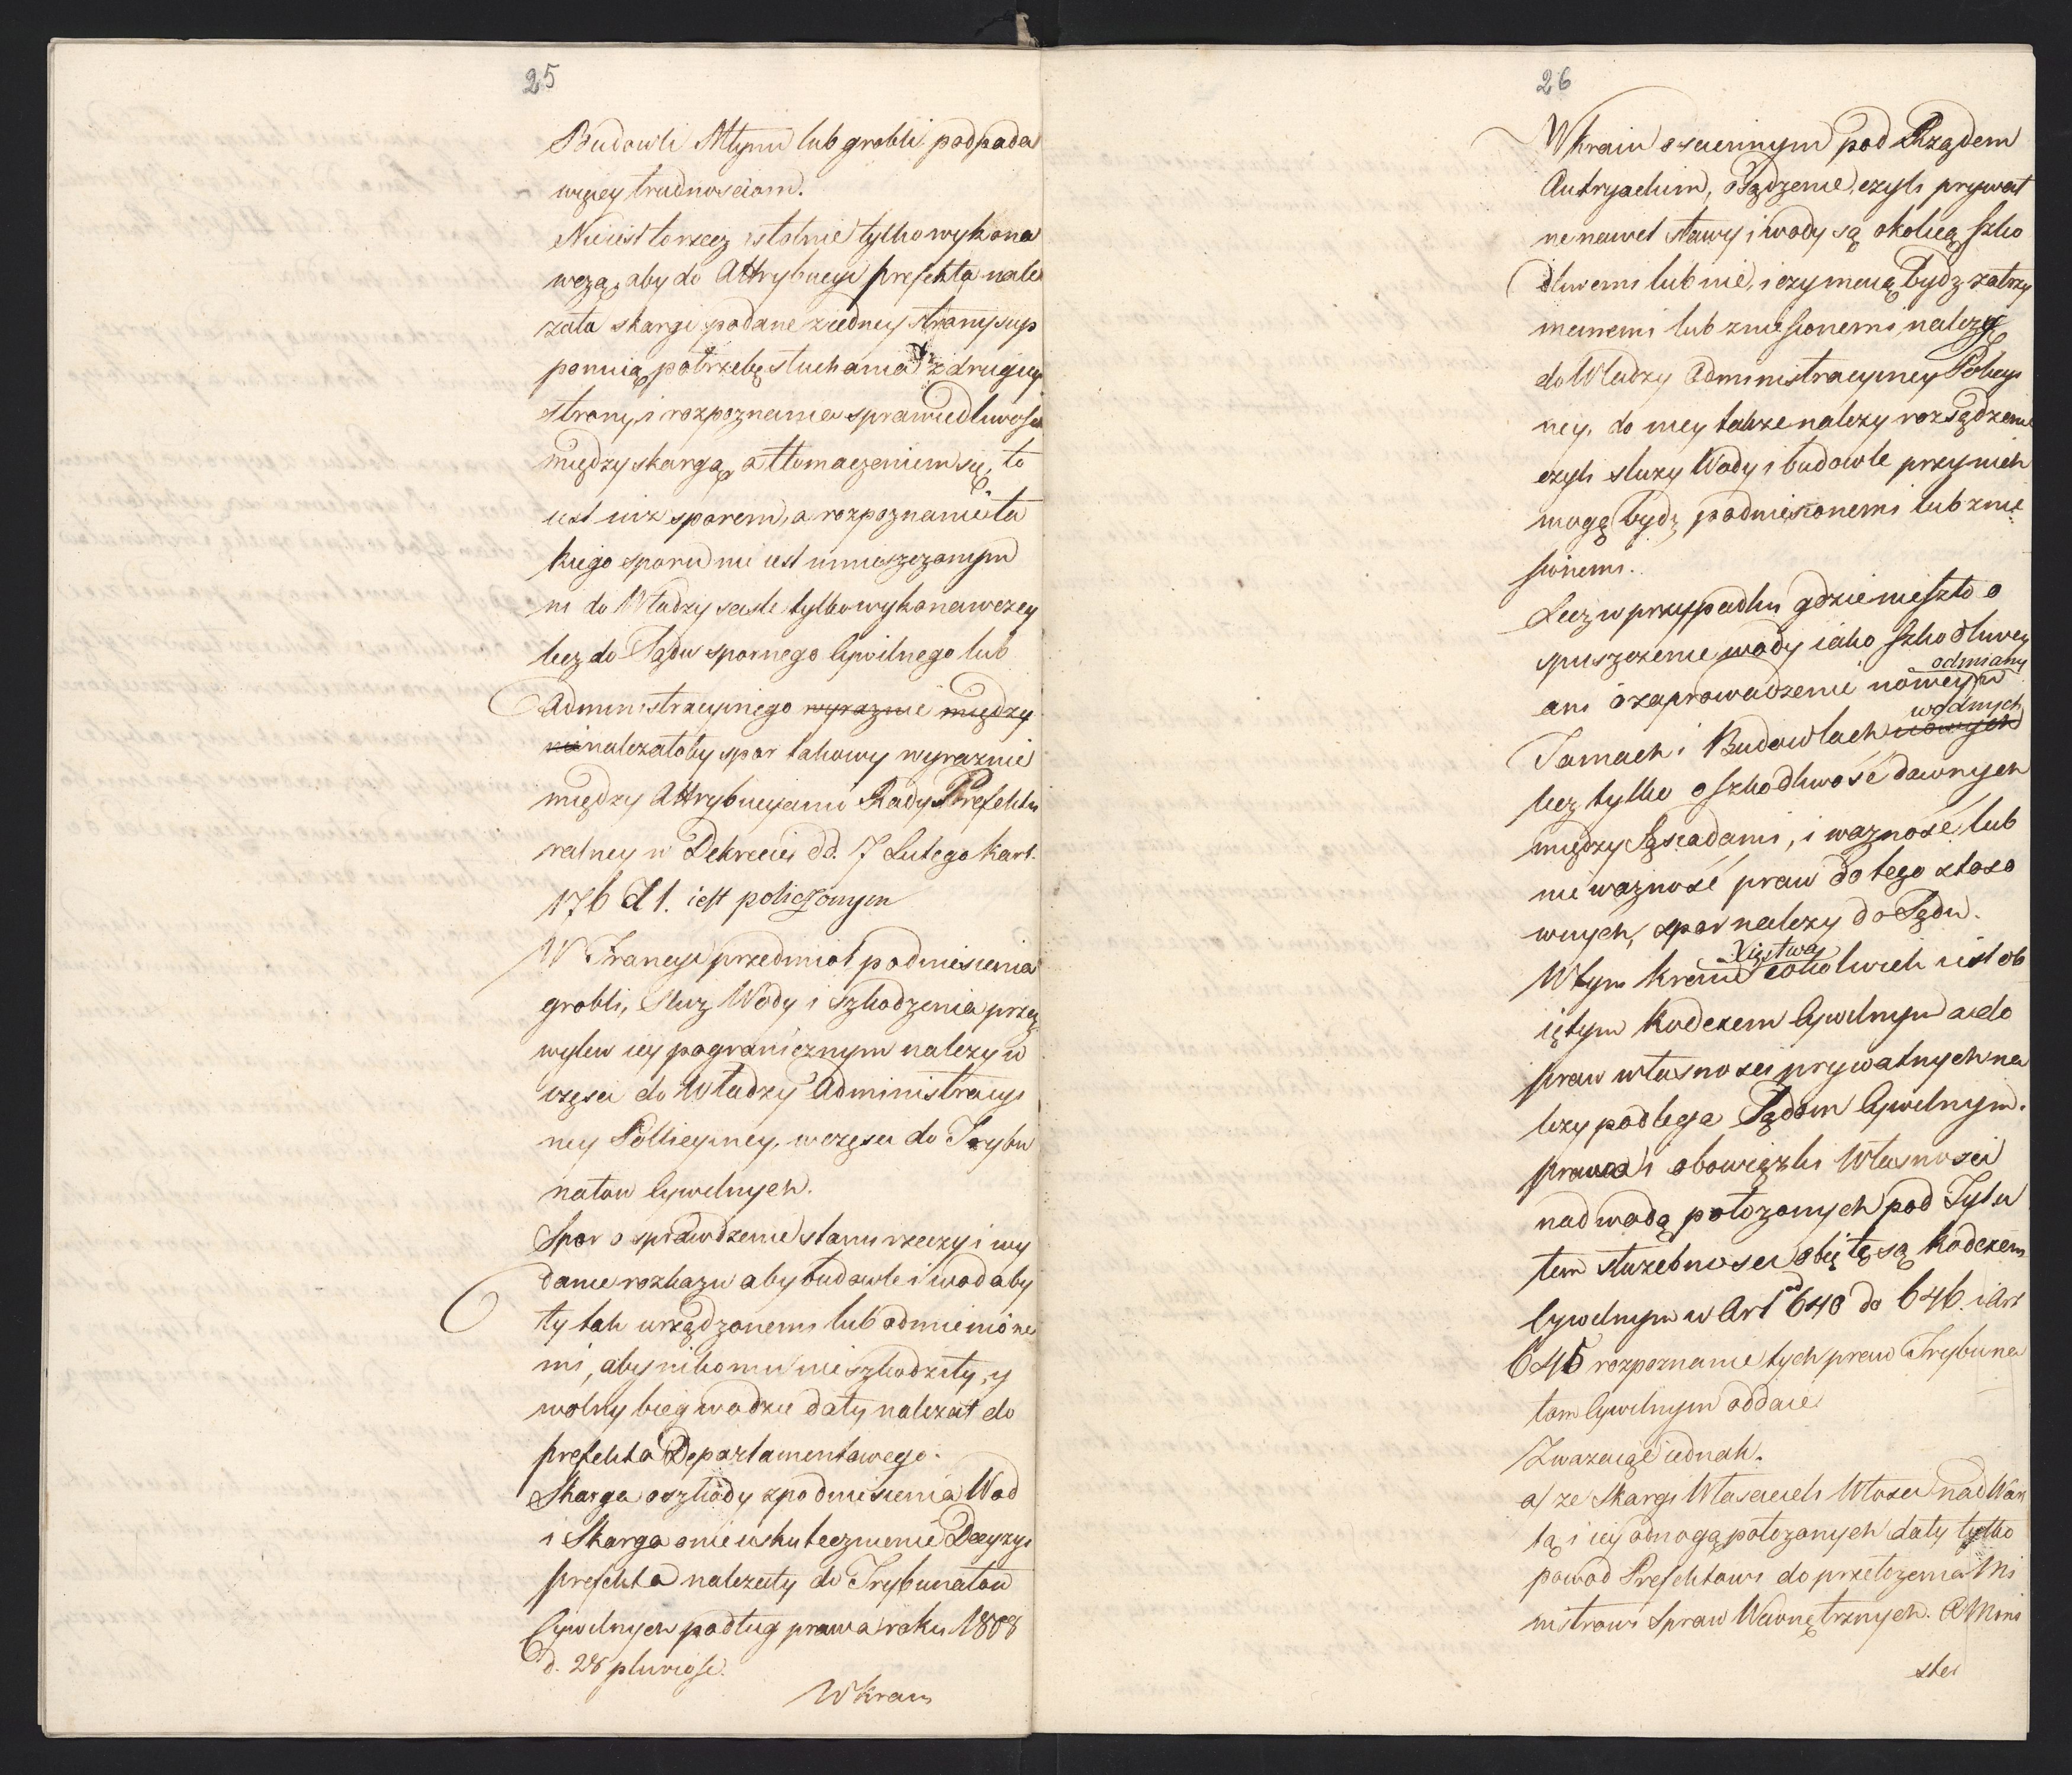 25
Budowli Młynu lub grobli podpada
więcey trudnosciom.
Nie iest to rzecz istotnie tylko wykona
wczą, aby do Attrybucyi prefekta nale
żała skargi podane z iedney strony sup
ponuią potrzebę słuchania z drugiey
strony i rozpoznania sprawiedliwosci
między skargą, a tłomaczeniem się, to
iest iuż sporem, a rozpoznanie ta
kiego sporu nie iest umieszczonym
ni do Władzy scisle tylko wykonawczey
lecz do Sądu spornego Cywilnego lub
Administracyinego wyraznie między
nie należałoby spor takowy wyraznie
między Attrybucyami Rady Prefektu
ralney w Dekrecie dd. 7 Lutego kart.
176 d 1. iest policzonym
W Francyi przedmiot podniesienia
grobli, sluz Wody i szkodzenia przez
wylew iey pogranicznym nalezy w
częsci do Władzy Administracyi
ney Policyiney, w częsci do Trybu
nałow Cywilnych.
Spor o sprawdzenie stanu rzeczy i wy
danie rozkazu aby budowle i wod aby
ły tak urządzonemi lub odmienione
mi, aby nikomu nie szkodziły, y
wolny bieg wodzie dały należał do
prefekta Departamentowego.
Skarga o szkody z podniesienia Wod
i Skarga o nieuskutecznienie Decyzyi
prefekta należały do Trybunałow
Cywilnych podług prawa roku 1808
d. 28 pluviose.
W kraiu
26
W kraiu osciennym pod Rządem
Autryackim, osądzenie, czyli prywat
ne nawet stawy i wody są okolicą szko
dliwemi lub nie, i czy maią bydz zatrzy
manemi lub zniesionemi, należy
do Władzy Administracyiney Policyi
ney, do niey takze nalezy rozsądzenie
czyli sluzy Wody i budowle przy nich
mogą bydz podniesionemi lub znie
sionemi.
Lecz w przyppadku gdzie nie szło o
spuszczenie wody iako szkodliwey
ani o zaprowadzenie nowey odmiany w
Tamach i Budowlach nowych wodnych
lecz tylko o szkodliwość dawnych
między Sąsiadami, i ważność lub
nie ważność praw do tego stoso
wnych, spor nalezy do Sądu.
W tym kraiu Xięstwa cokolwiek iest ob
iętym Kodexem Cywilnym a do
praw własnosci prywatnych na
leży podlega Sądom Cywilnym.
prawa i obowiązki Własnosci
nad wodą położonych pod Tytu
łem służebnosci obięte są Kodexem
Cywilnym w Art od 640 do 646. i Art
645 rozpoznanie tych praw Trybuna
łom Cywilnym oddaie.
Zważaiąc iednak.
a/ ze Skargi Włascicieli Włosci nad War
tą i iey odnogą położonych dały tylko
powod Prefektowi do przełożenia Mi
nistrowi Spraw Wewnętrznych. A Mini
ster